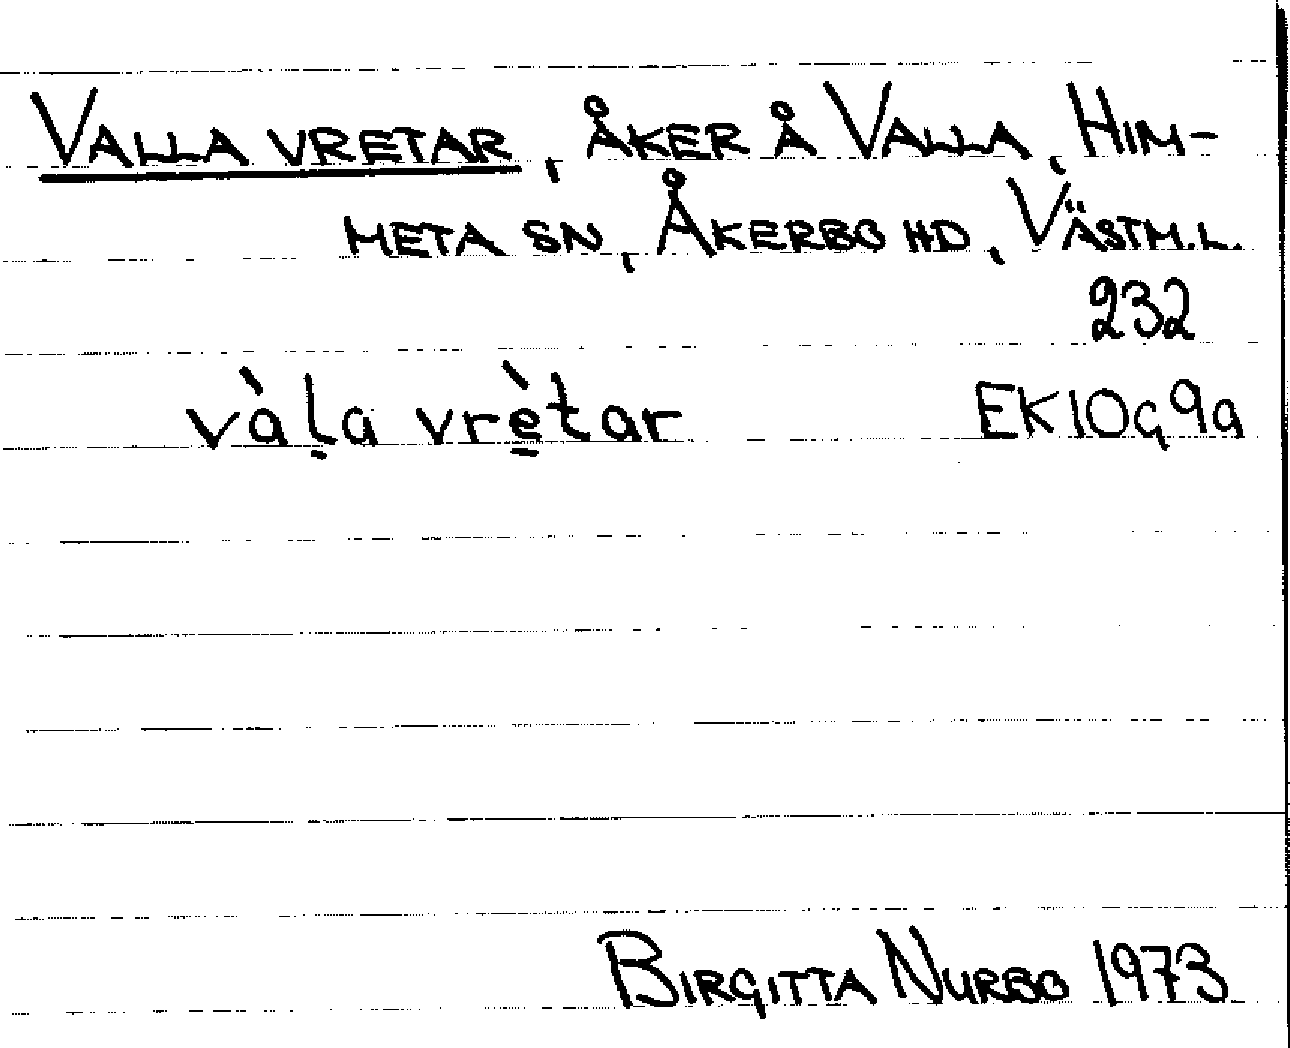 VALLA VRETAR, ÅKER Å VALLA, HIM-
META SN, ÅKERBO HD, VÄSTM.L.
232
vàl̠a vrè̠tar EK10G9a
BIRGITTA NURBO 1973